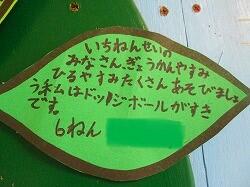 いちねんせいの
みなさん、ぎょうかんやすみ
ひるやすみたくさんあそびましょ
う。私はドッジボールがすき
です。
6ねん